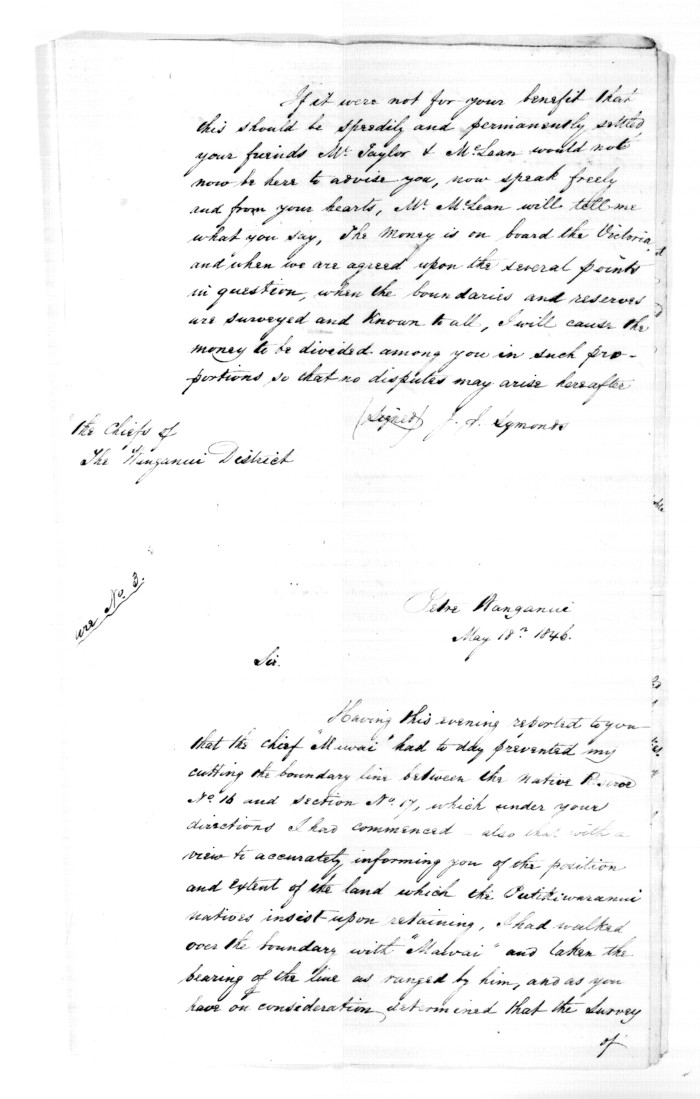 If it were not for your benefit that
this should be speedily and permanently settled
your friends Mr. Taylor & McLean would not
now be here to advise you, now speak freely
and from your hearts, Mr. McLean will tell me
what you say, The money is on board the Victoria,
and when we are agreed upon the several points
in question, when the boundaries and reserves
are surveyed and known to all, I will cause the
money to be divided among you in such pro-
portions, so that no disputes may arise hereafter
(Signed) J. S. Symonds
the Chiefs of
The Wanganui District
ure No. 3.
Petre Wanganui
May 18th 1846.
Sir.
Having this evening reported to you
that the chief "Mawai" had to day prevented my
cutting the boundary line between the native Reserve
No. 16 and section No. 17, which under your
directions I had commenced - also that with a
view to accurately informing you of the position
and extent of the land which the Putikiwaranui
natives insist upon retaining, I had walked
over the boundary with "Mawai" and taken the
bearing of the line as ranged by him, and as you
have on consideration determined that the Survey
of